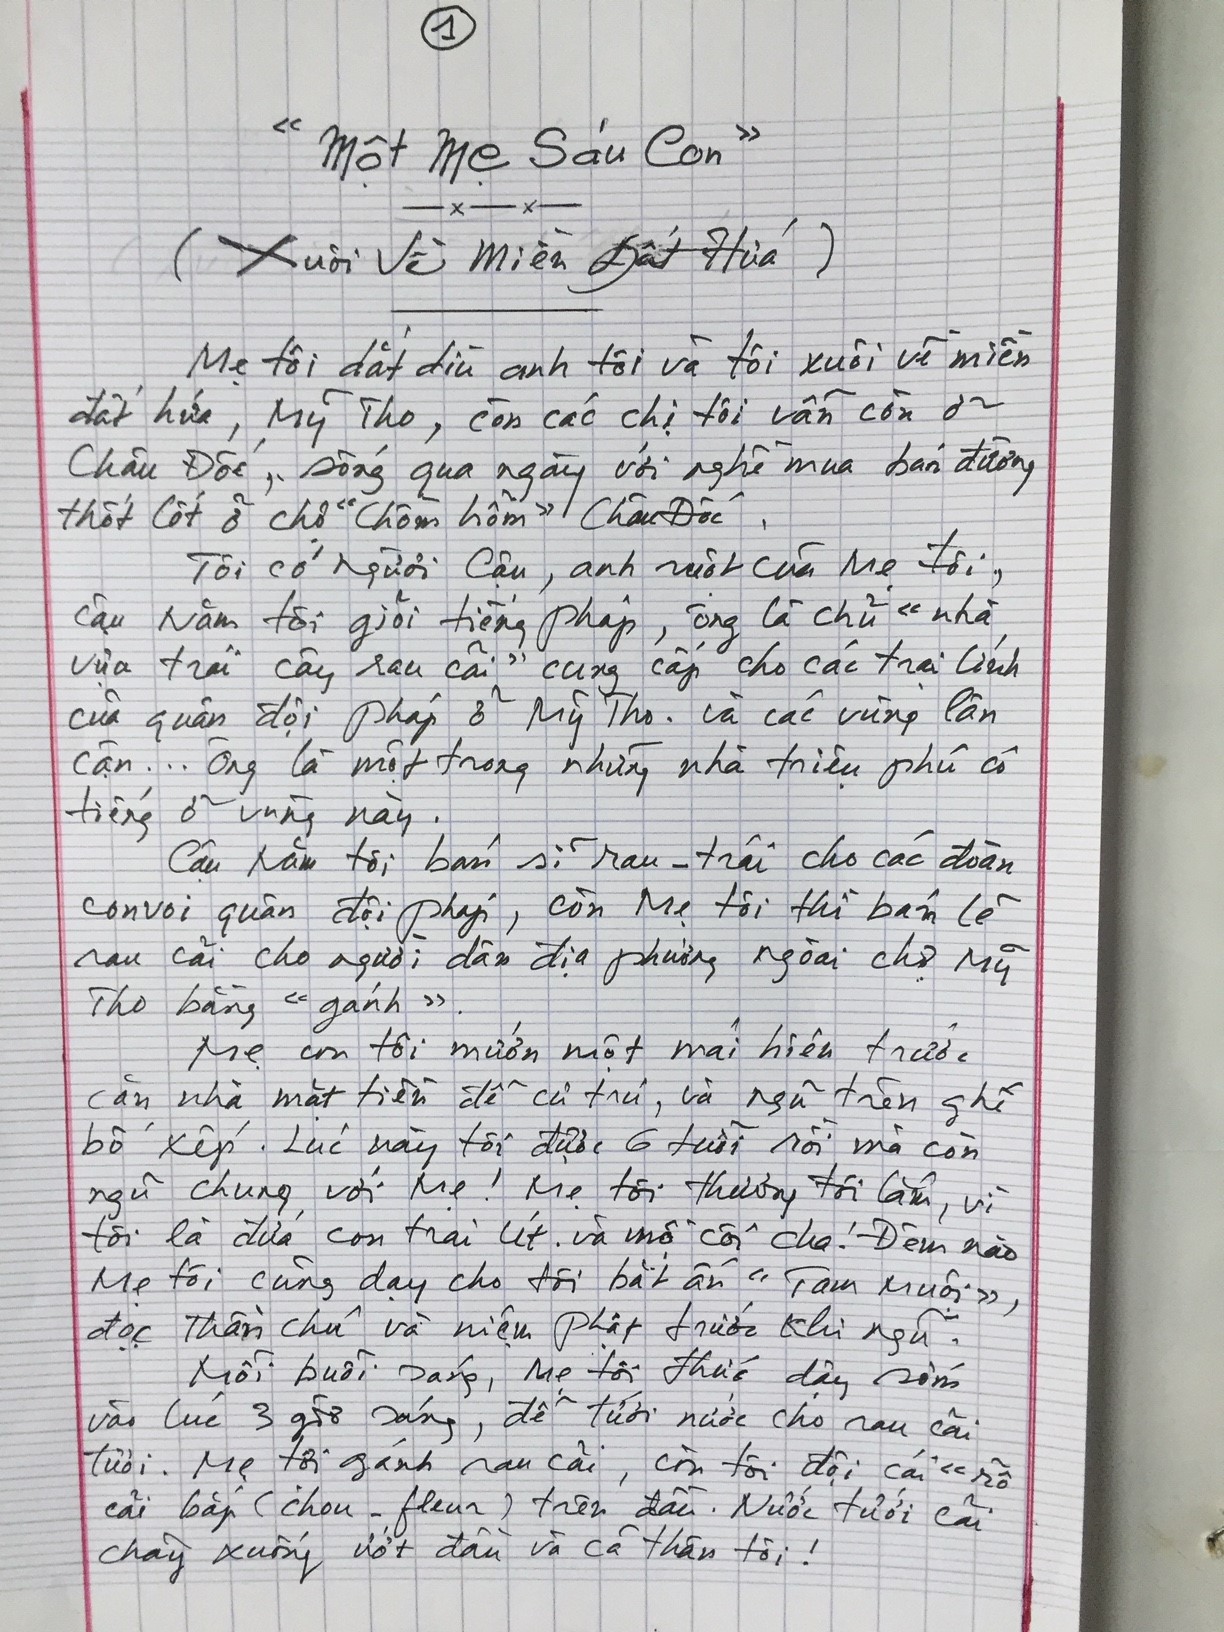 1
"Một Mẹ Sáu Con"
—x—x—
( Xuôi Về Miền Đất Hứa )
Mẹ tôi dắt dìu anh tôi và tôi xuôi về miền
đất hứa, Mỹ Tho, còn các chị tôi vẫn còn ở
Châu Đốc, sống qua ngày với nghề mua bán đường
thốt lốt ở chợ "Chồm hổm" Châu Đốc.
Tôi có người Cậu, anh ruột của Mẹ tôi,
cậu Năm tôi giỏi tiếng pháp, ông là chủ "nhà
vựa trái cây rau cải" cung cấp cho các trại lính
của quân đội pháp ở Mỹ Tho. và các vùng lân
cận... Ông là một trong những nhà triệu phú có
tiếng ở vùng này.
Cậu Năm tôi bán sỉ rau - trái cho các đoàn
convoi quân đội pháp, còn Mẹ tôi thì bán lẻ
rau cải cho người dân địa phương ngoài chợ Mỹ
Tho bằng "gánh".
Mẹ con tôi mướn một mái hiên trước
căn nhà mặt tiền để cư trú, và ngủ trên ghế
bố xếp. Lúc này tôi được 6 tuổi rồi mà còn
ngủ chung với Mẹ! Mẹ tôi thương tôi lắm, vì
tôi là đứa con trai út. và mồ côi cha! Đêm nào
Mẹ tôi cũng dạy cho tôi bắt ấn "Tam muội",
đọc Thần chú và niệm phật trước khi ngủ.
Mỗi buổi sáng, Mẹ tôi thức dậy sớm
vào lúc 3 giờ sáng, để tưới nước cho rau cải
tươi. Mẹ tôi gánh rau cải, còn tôi đội cái "rỗ
cải bắp (chou - fleur) trên đầu. Nước tưới cải
chảy xuống ướt đầu và cả thân tôi!